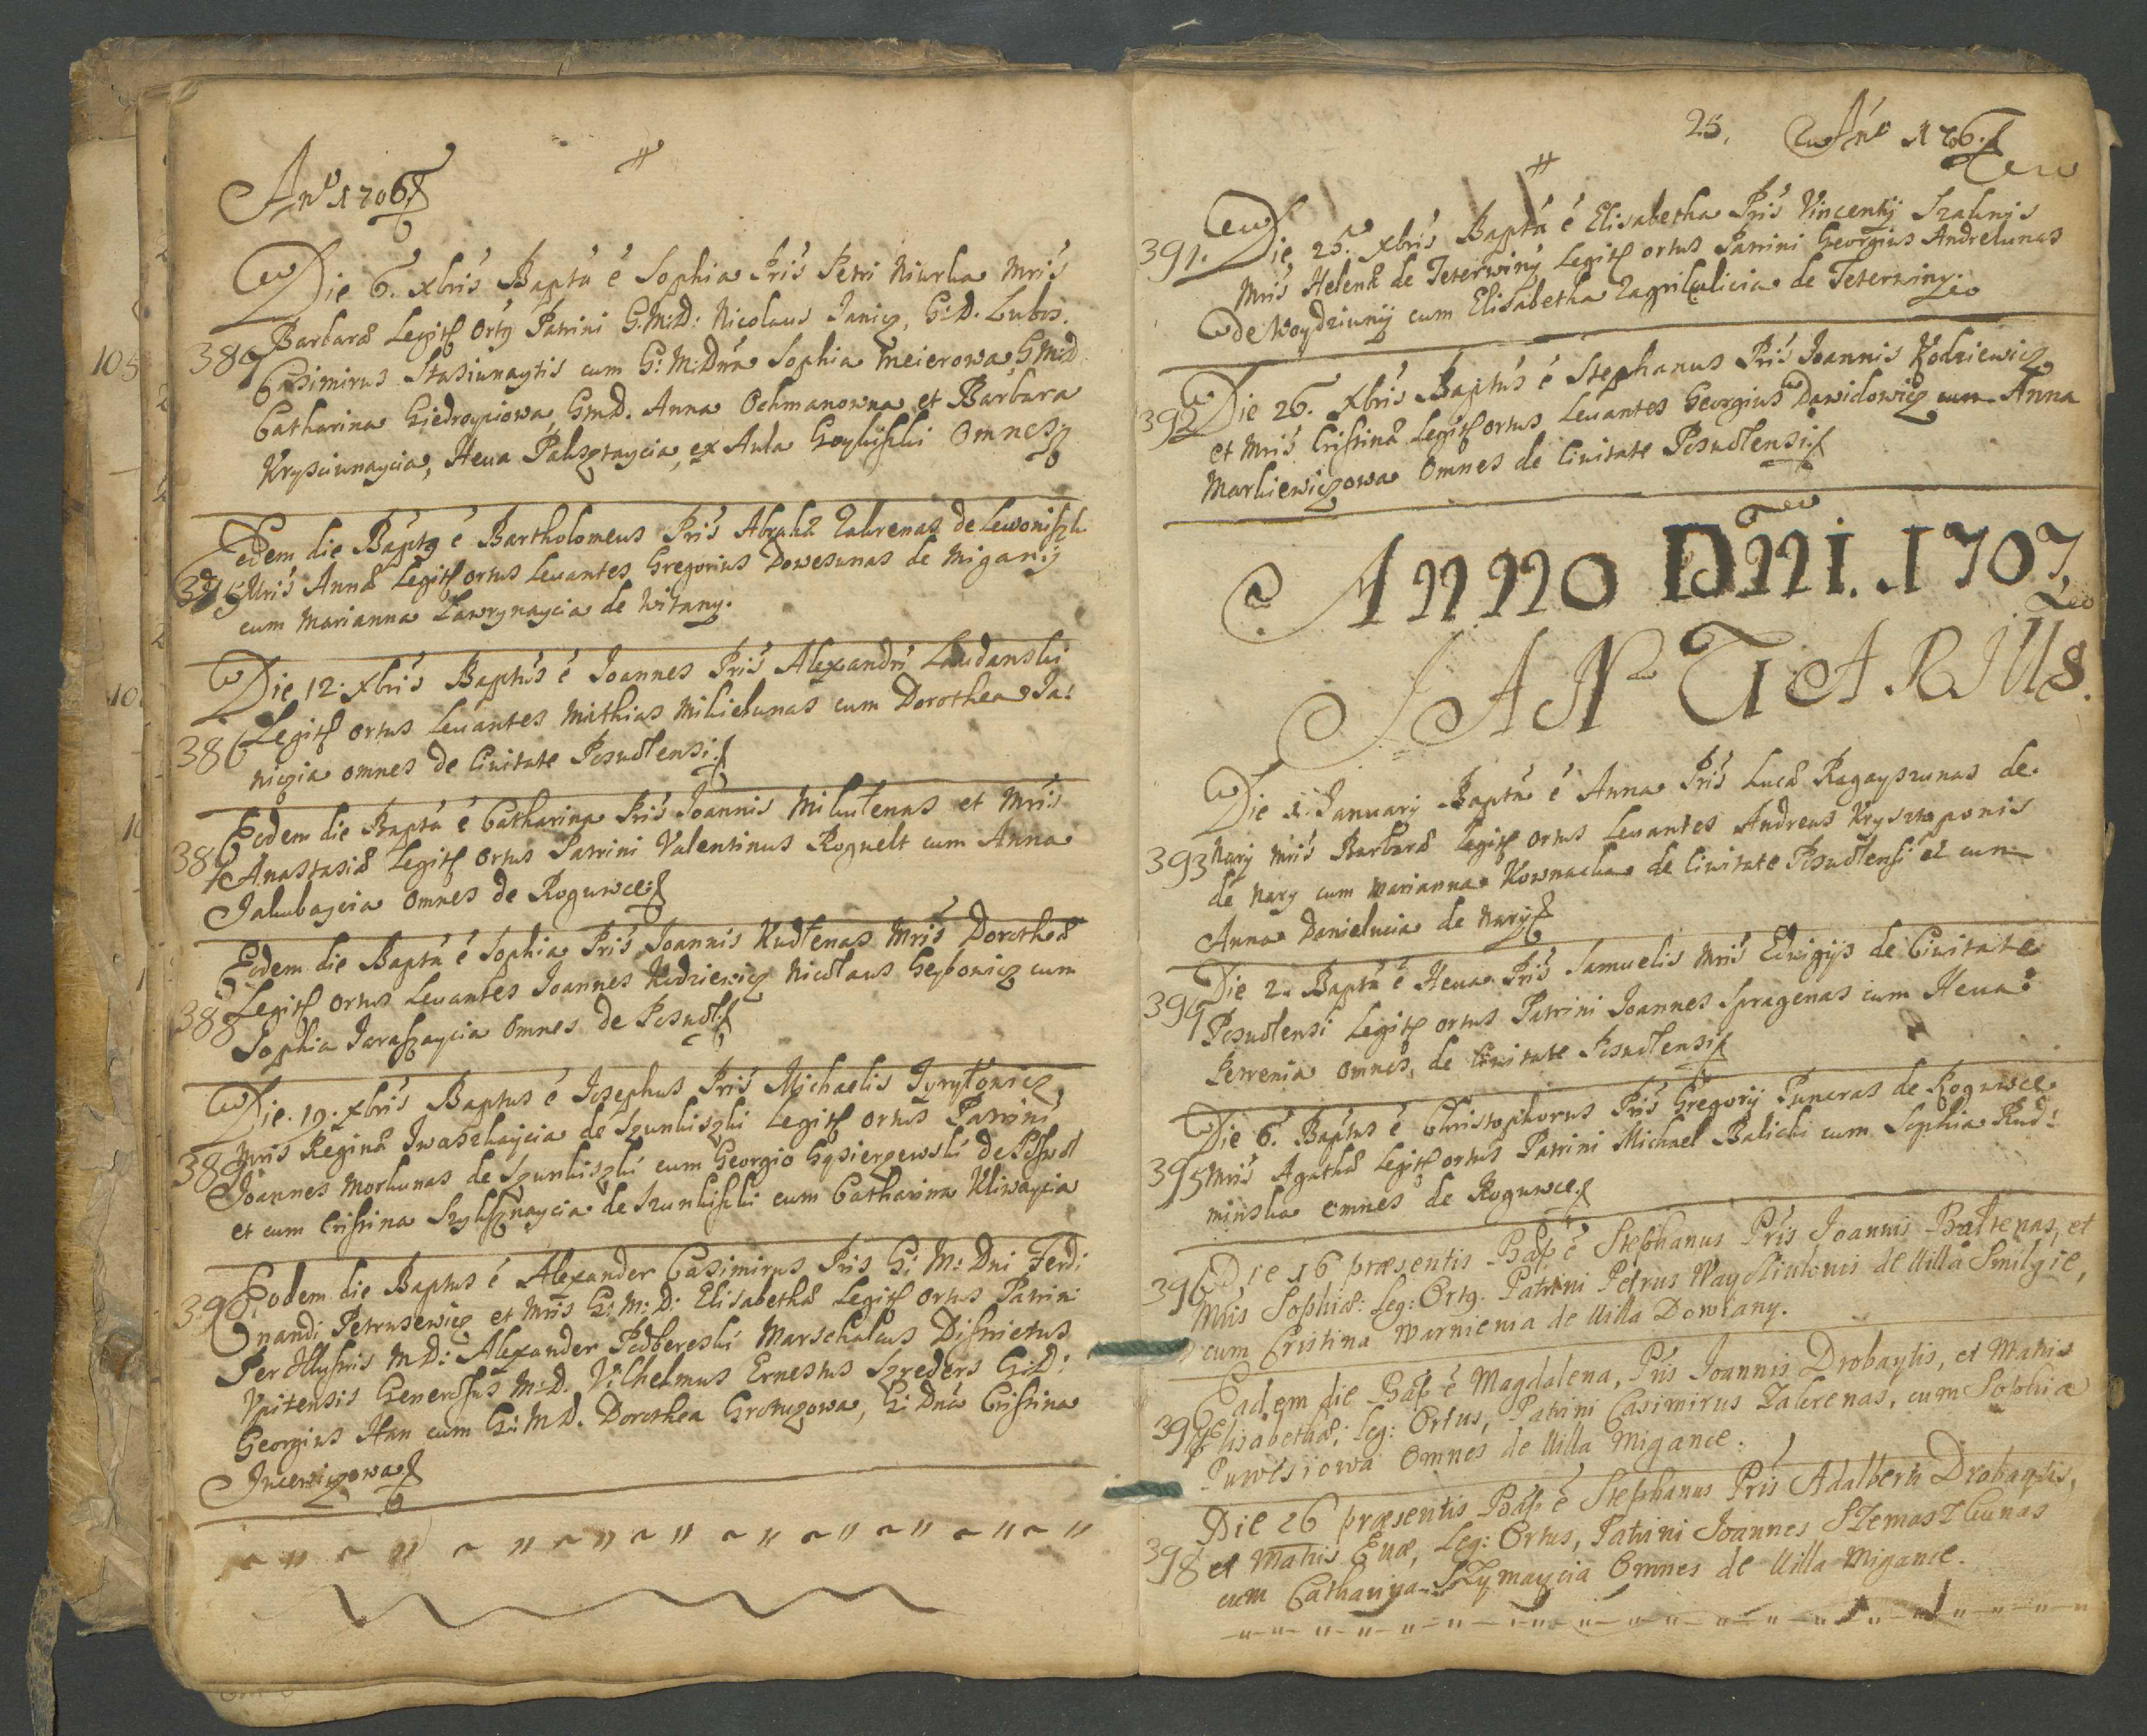 Anº 1706
Die 6. xbris Bapta é Sophia Pris Petri Niurka Mris
384 Barbara Legitt Ortg Patrini G.M:D: Nicolaus Janicz, G:D. Lubos.
Casimirus Stasiunaytis cum G: M: Dna Sophia Meierowa G:M:D
Catharina Giedroyciowa, G.M.D. Anna Ochmanowna et Barbara
Krysciunaycia, Heua Paksztaycia, ex Aula Goyliszki Omnes
Eodem die Baptg é Bartholomeus Pris Abraha Zakrenas de Lewoniszk
385 Mris Anna Legitt ortus Leuantes Gregorius Dowesunas de Miganÿ
cum Marianna Lawrynaycia de Witany.
Die 12. xbris Baptus é Joannes Pris Alexandri Laudanski
386 Legitt ortus Leuantes Mathias Mikielunas cum Dorothea Ja:
niczia omnes de Ciuitate Posuolensi
Eodem die Bapta é Catharina Pris Joannis Mikutenas et Mris
387 Anastasia Legitt ortus Patrini Valentinus Roguelt cum Anna
Jakubaycia Omnes de Roguwce
Eodem die Bapta é Sophia Pris Joannis Kudtenas Mris Dorothea
388 Legitt ortus Leuantes Joannes Kodziewicz Nicolaus Geybowicz cum
Sophia Jaraszaycia Omnes de Posuol
Die. 19. xbris Baptus é Josephus Pris Michaelis Jyrytowicz
389 Mris Regina Iwaszkaycia de Szunkiszki Legitt ortus Patrini
Joannes Morkunas de Szunkiszki cum Georgio Gzsierzewski de Posuol
et cum Cristina Szyksznaycia de Szunkiszki cum Catharina Kliwaycia
390 Eodem die Baptus é Alexander Casimirus Pris G: M: Dni Ferdi
nandi Petrusewicz et Mris G: M: D: Elisabetha Legitt ortus Patrini
Per Illustris M:D: Alexander Podbereski Marschalcus Districtus
Vpitensis Generosus M:D. Vilhelmus Ernestus Szreders G:D:
Georgius Han cum G: M D. Dorothea Grotuzowa, G: Dna Cristina
Jncewiczowa
25. Anº 1706.
391. Die 25. xbris Bapta é Elisabetha Pris Vincentij Szaknis
Mris Helena de Teterwinÿ Legitt ortus Patrini Georgius Andrekunas
de Woydziunÿ cum Elisabetha Zagrikulicia de Teterwiny.
392 Die 26. Xbris Baptus é Stephanus Pris Joannis Kodziewicz
et Mris Cristina Legitt ortus Leuantes Georgius Dawidowicz cum Anna
Markiewiczowa Omnes de Ciuitate Posuolensi
ANNO DNI. 1707.
JANUARIUS.
Die 1. January Bapta é Anna Pris Luca Ragayszunas de
393 Nary Mris Barbara Legitt ortus Leuantes Andreas Krysztoponis
de Nary cum Marianna Kownacka de Ciuitate Posuolensi et cum
Anna Danielucia de Narÿ
394 Die 2. Bapta é Heua Pris Samuelis Mris Edwigijs de Ciuitate
Posuolensi Legitt ortus Patrini Joannes Spragenas cum Heua:
Perrenia omnes de Ciuitate Posuolensi
Die 6. Baptus é Christophorus Pris Gregorij Puncras de Roguwce
395 Mris Agatha Legitt ortus Patrini Michael Balicki cum Sophia Rud:
minska omnes de Roguwce
396 Die 16 præsentis Bap é Stephanus Pris Joannis Baltenas, et
Mris Sophiæ: Leg: Ortg. Patrini Petrus Waydziulonis de Uilla Smilgie,
cum Cristina Warnienia de Uilla Dowlany.
Eadem die Bap é Magdalena, Pris Joannis Drobaytis, et Matris
397 Elisabethæ; Leg: Ortus, Patrini Casimirus Zakrenas, cum Sophia
Puwlsiowa Omnes de Uilla Migance.
Die 26 præsentis Bap é Stephanus Pris Adalberti Drobaytis,
398 et Matris Euæ, Leg: Ortus, Patrini Joannes SZemaszkunas
cum Catharina SZymaycia Omnes de Uilla Migance.